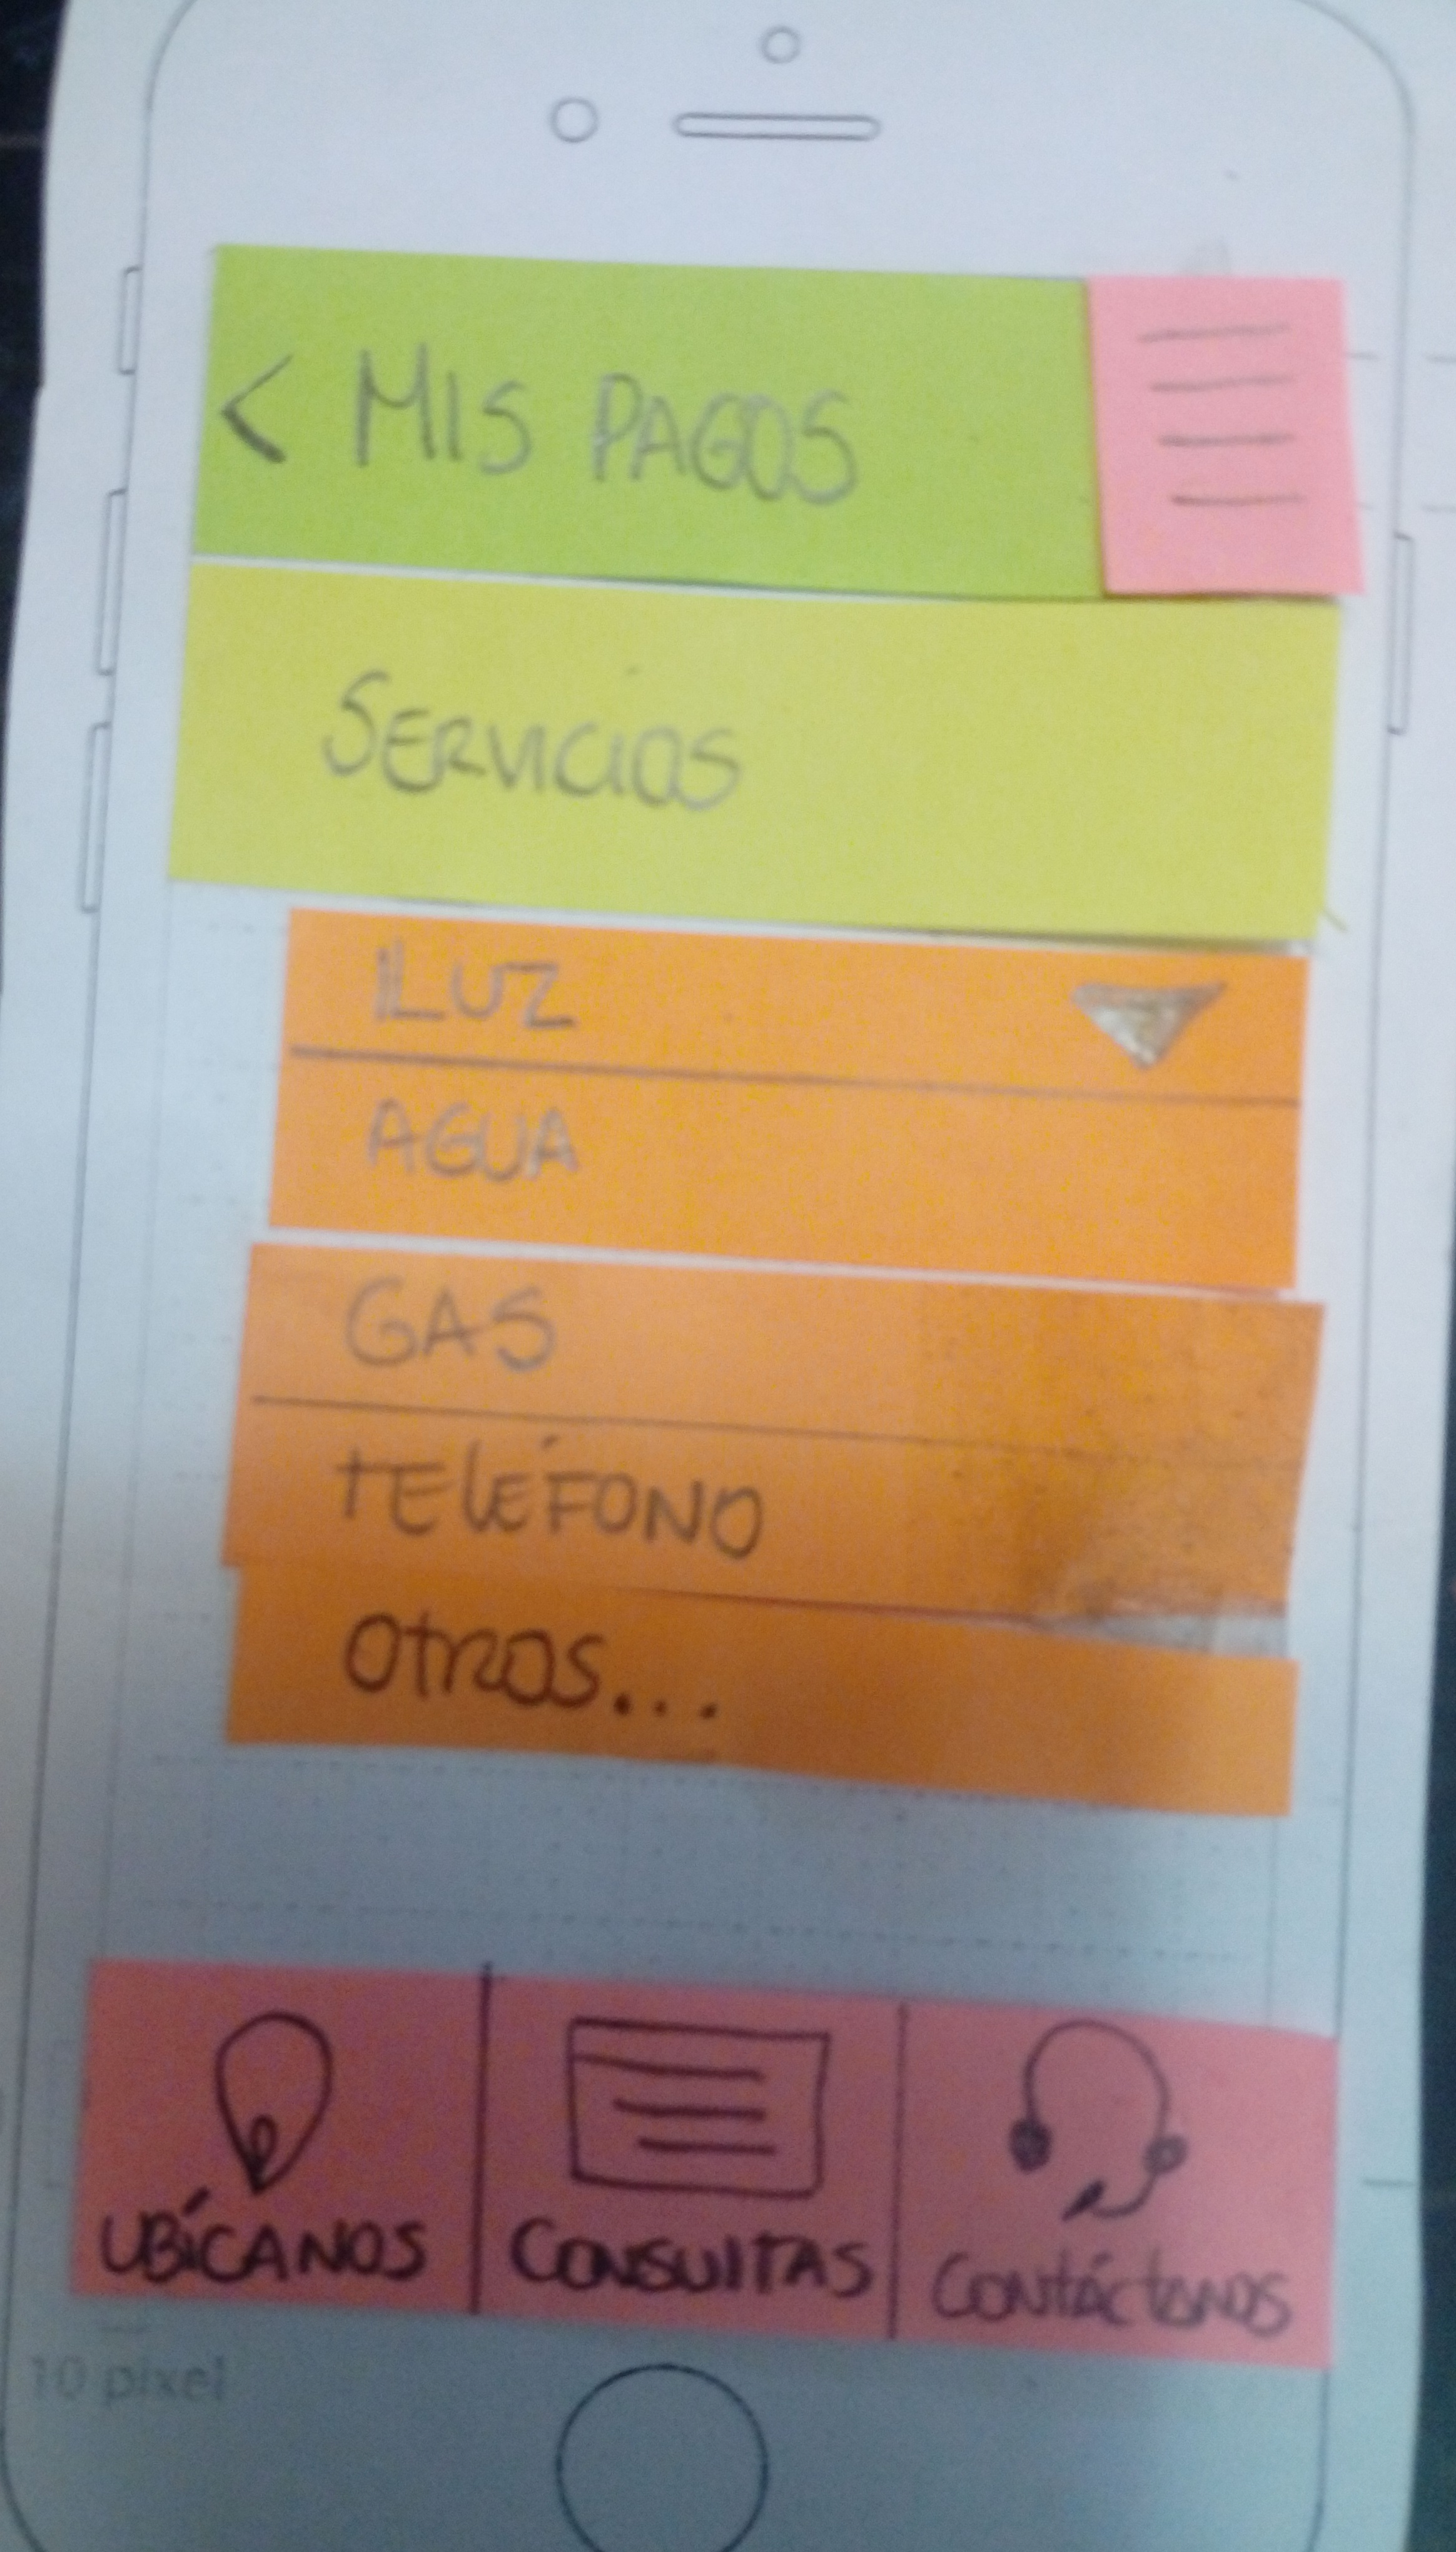 < MIS PAGOS
SERVICIOS
LUZ
AGUA
GAS
TELÉFONO
OTROS...
UBÍCANOS
CONSULTAS
CONTÁCTANOS
10 pixel